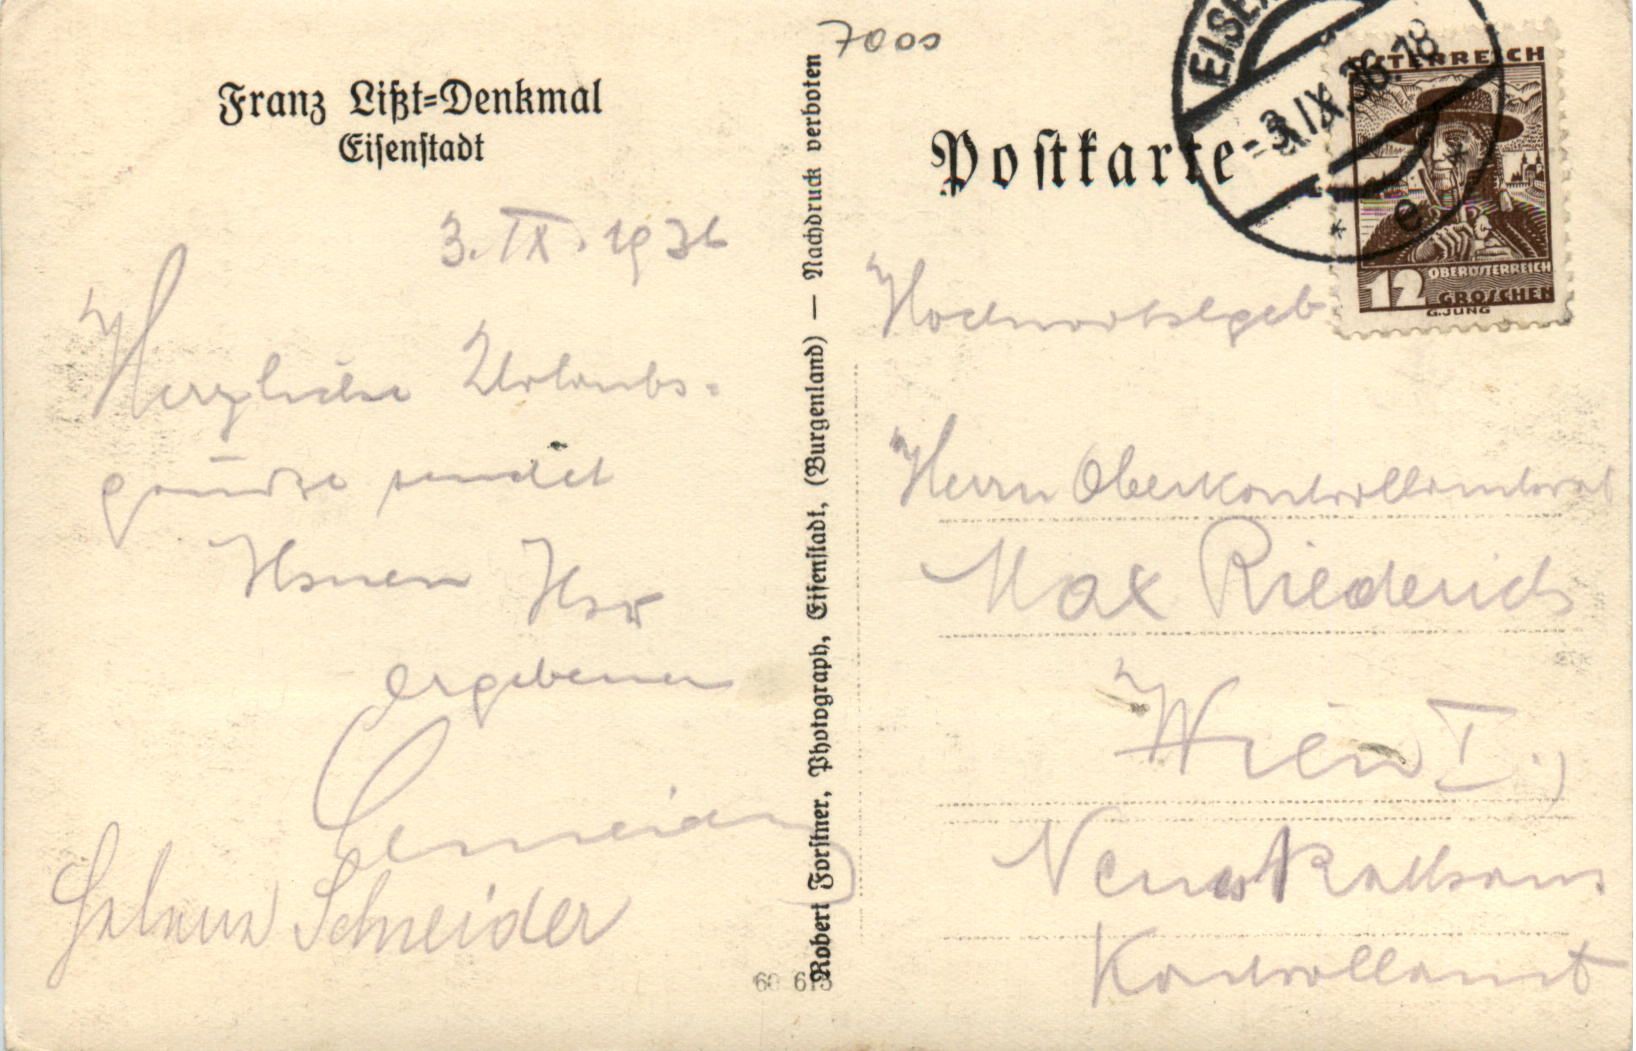 7000
Franz Lißt-Denkmal
Eisenstadt
3. IX. 1936
Herzliche Urlaubs-
grüße sendet
Ihnen Ihr
ergebener
Schneider
Schneider
Robert Forstner, Photograph, Eisenstadt, (Burgenland) — Nachdruck verboten
60 613
Postkarte
EISEN
-3.IX.36.18
* e *
ÖSTERREICH
OBERÖSTERREICH
12 GROSCHEN
G.JUNG
Hochwohlgeb
Herrn Oberkontrollamtsrat
Max Riederich
Wien I.,
Neues Rathaus
Kontrollamt